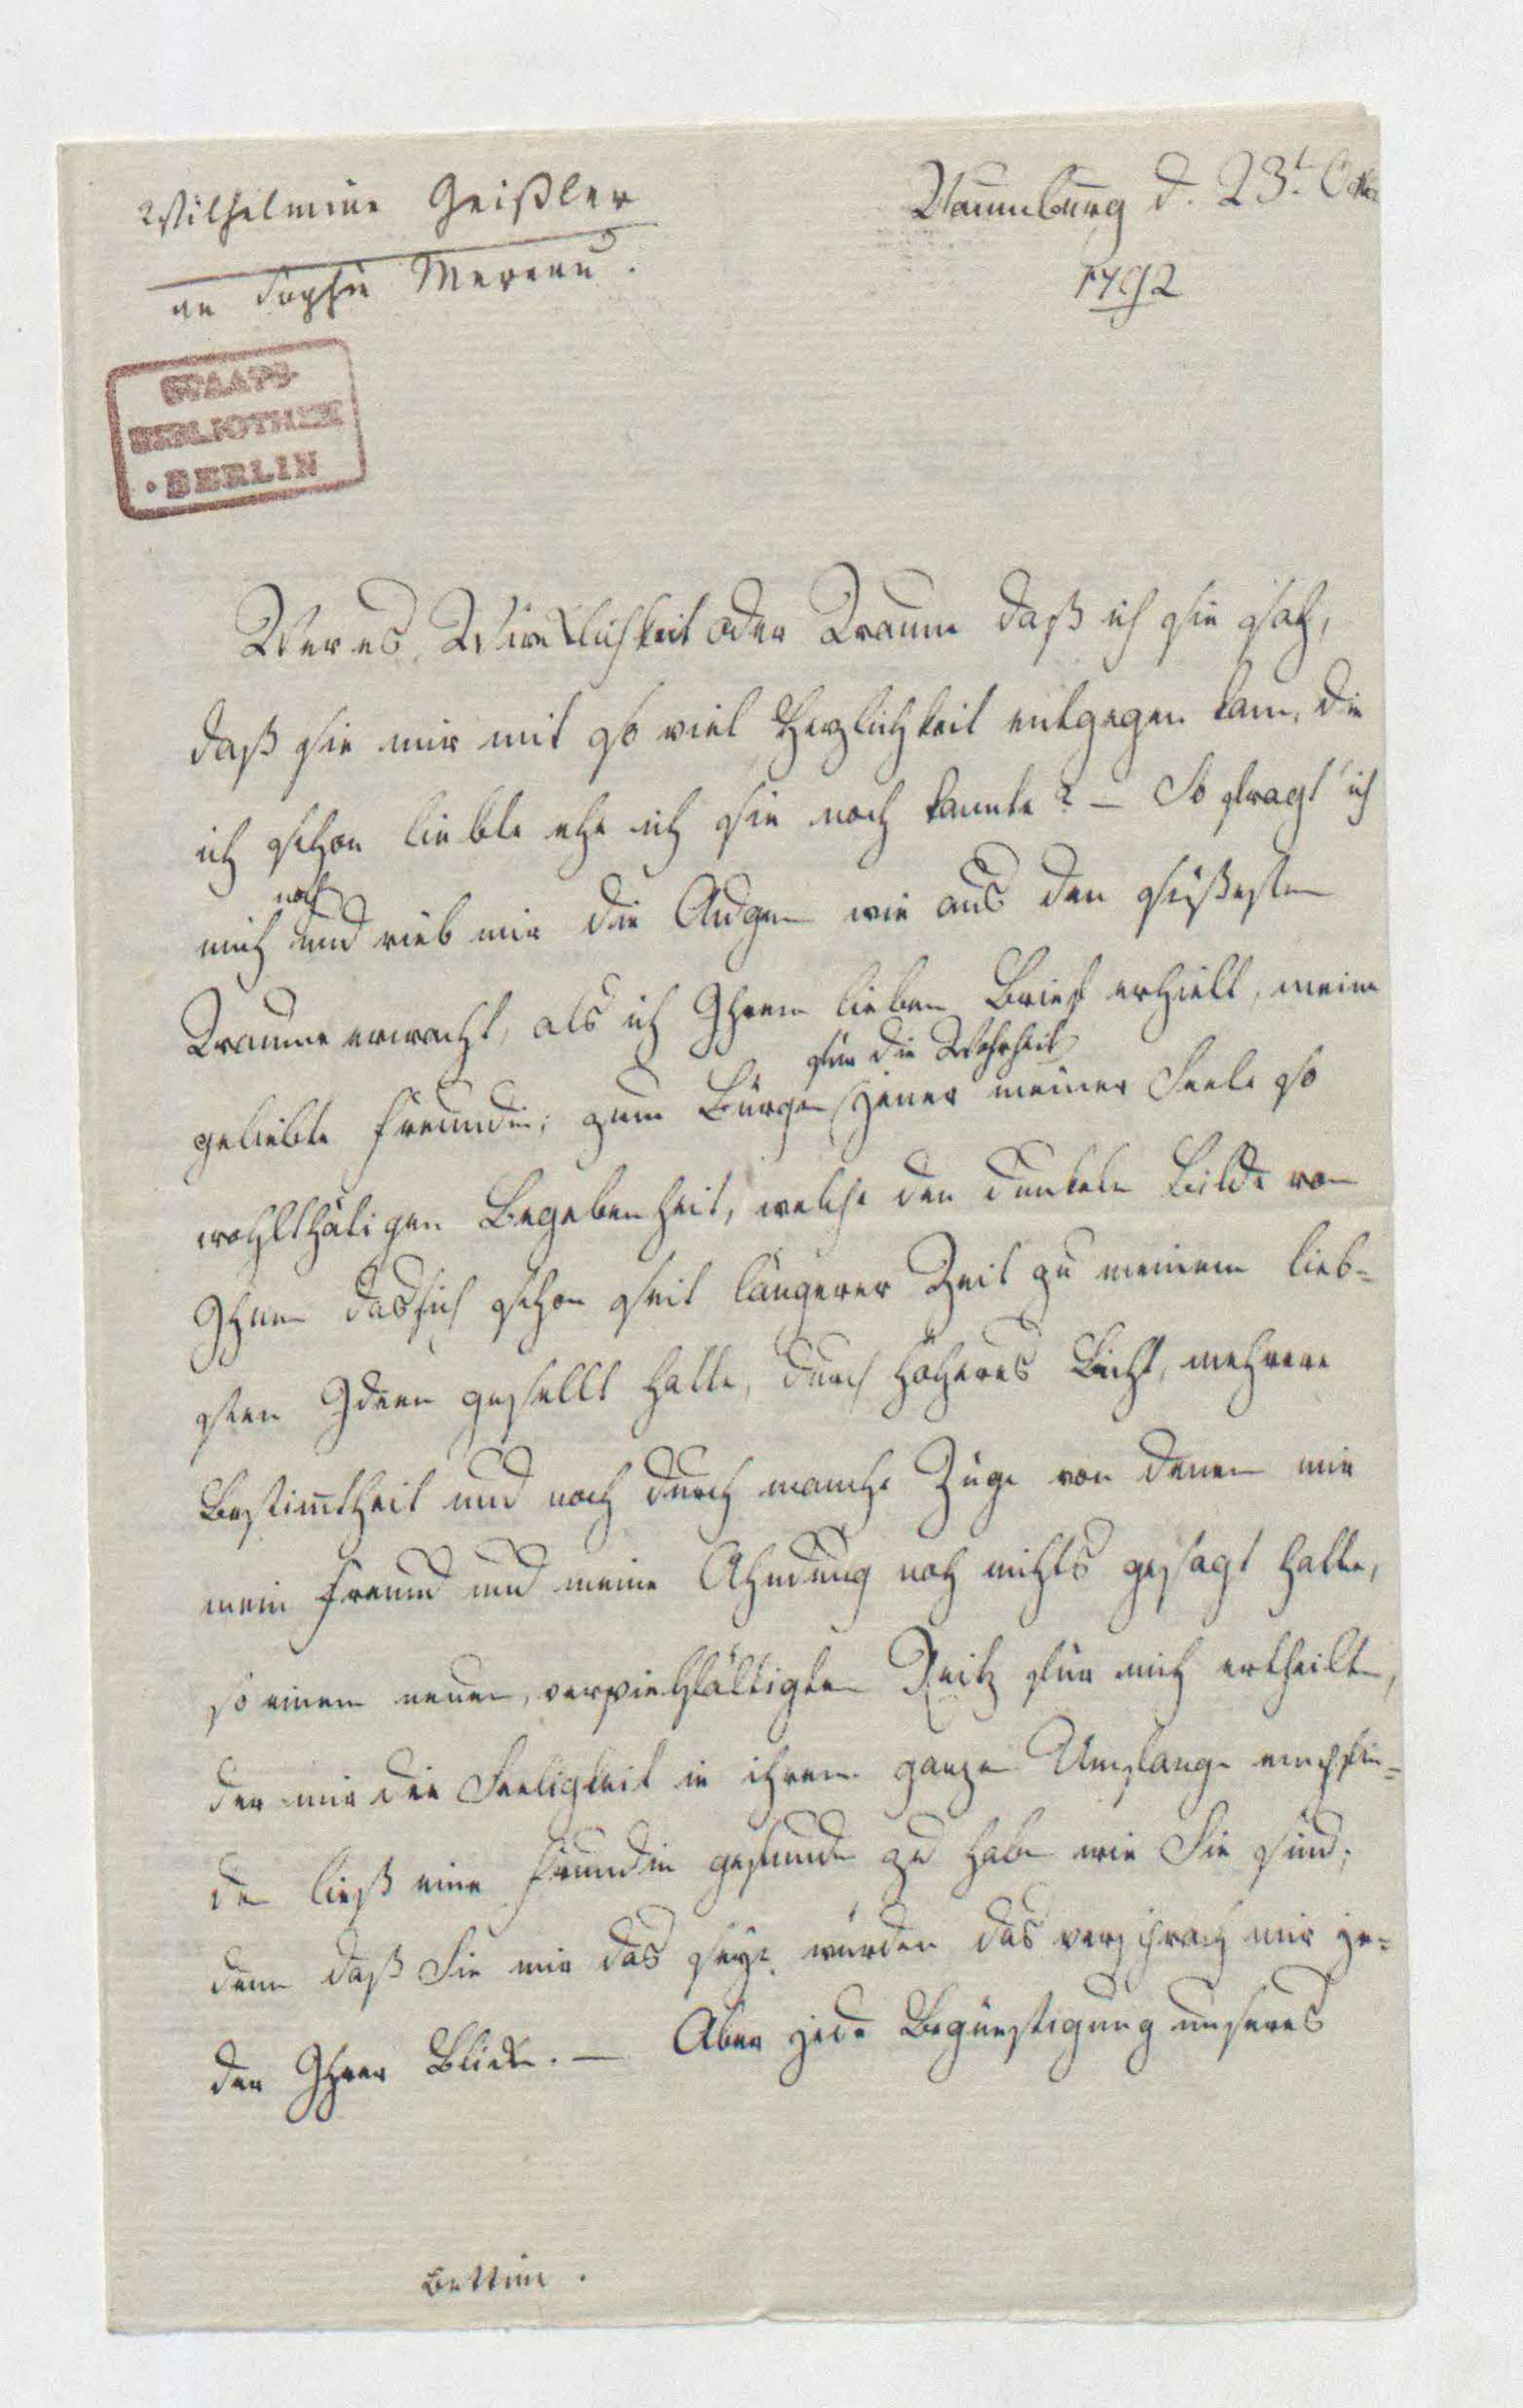 Wilhelmine Geißler
an Sophie Mereau.
Naumburg d. 23t. Okt.
1792
STAATS-
BIBLIOTHEK
• BERLIN
War es Wirklichkeit oder Traum daß ich sie sah,
daß sie mir mit so viel Herzlichkeit entgegen kam, die
ich schon liebte ehe ich sie noch kannte? – So fragt' ich
noch
mich und rieb mir die Augen wie aus den süßesten
Traume erwacht, als ich Ihren lieben Brief erhielt, meine
für die Wahrheit
geliebte Freundin; zum Bürgen jener meiner Seele so
wohlthätigen Begebenheit, welche den dunkeln Bilde von
Ihnen das sich schon seit längerer Zeit zu meinem lieb=
sten Ideen gesellt hatte, durch höheres Licht, mehrere
Bestim̅theit und noch durch manche Züge von denen mir
mein Freund und meine Ahndung noch nichts gesagt hatte,
so einen neuen, vervielfältigten Reitz für mich ertheilte,
der mir die Seeligkeit in ihren ganzen Umfange empfin=
den ließ eine Freundin gefunden zu haben wie Sie sind;
denn daß Sie mir das seyn würden das versprach mir je=
der Ihrer Blicke. – Aber jede Begünstigung unseres
Bettine.